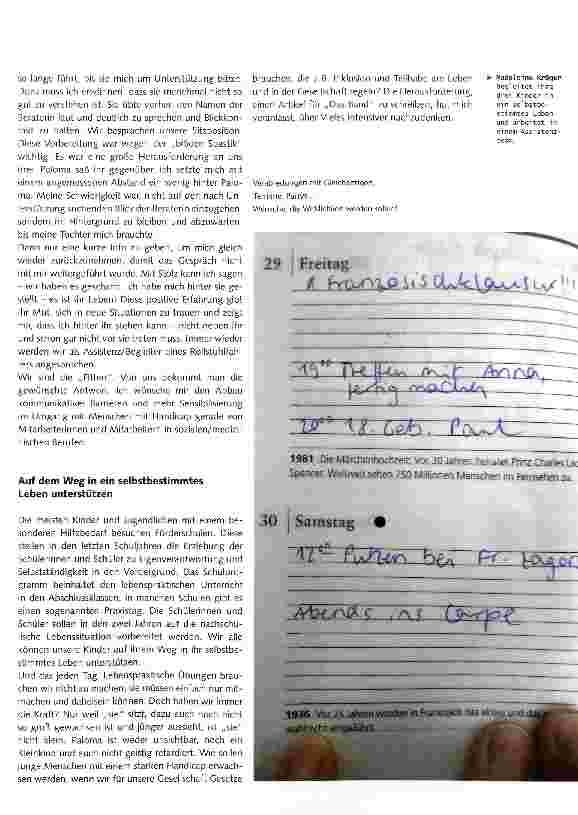 so lange führt, bis sie mich um Unterstützung bittet.
Dazu muss ich erwähnen, dass sie manchmal nicht so
gut zu verstehen ist. Sie übte vorher, den Namen der
Beraterin laut und deutlich zu sprechen und Blickkon-
takt zu halten. Wir besprachen unsere Sitzposition.
Diese Vorbereitung war wegen der „blöden Spastik“
wichtig. Es war eine große Herausforderung an uns
drei. Paloma saß ihr gegenüber, ich setzte mich auf
einem angemessenen Abstand ein wenig hinter Palo-
ma. Meine Schwierigkeit war, nicht auf den nach Un-
terstützung suchenden Blick der Beraterin einzugehen,
sondern im Hintergrund zu bleiben und abzuwarten,
bis meine Tochter mich brauchte.
Denn nur eine kurze Info zu geben, um mich gleich
wieder zurückzunehmen, damit das Gespräch nicht
mit mir weitergeführt wurde. Mit Stolz kann ich sagen
– wir haben es geschafft. Ich habe mich hinter sie ge-
stellt – es ist ihr Leben! Diese positive Erfahrung gibt
ihr Mut, sich in neue Situationen zu trauen und zeigt
mir, dass ich hinter ihr stehen kann – nicht neben ihr
und schon gar nicht vor sie treten muss. Immer wieder
werden wir als Assistenz/Begleiter eines Rollstuhlfah-
rers angesprochen.
Wir sind die „Fitten“. Von uns bekommt man die
gewünschte Antwort. Ich wünsche mir den Abbau
kommunikativer Barrieren und mehr Sensibilisierung
im Umgang mit Menschen mit Handicap gerade von
Mitarbeiterinnen und Mitarbeitern in sozialen/medizi-
nischen Berufen.
Auf dem Weg in ein selbstbestimmtes
Leben unterstützen
Die meisten Kinder und Jugendlichen mit einem be-
sonderen Hilfebedarf besuchen Förderschulen. Diese
stellen in den letzten Schuljahren die Erziehung der
Schülerinnen und Schüler zu Eigenverantwortung und
Selbstständigkeit in den Vordergrund. Das Schulpro-
gramm beinhaltet den lebenspraktischen Unterricht
in den Abschlussklassen. In manchen Schulen gibt es
einen sogenannten Praxistag. Die Schülerinnen und
Schüler sollen in den zwei Jahren auf die nachschu-
lische Lebenssituation vorbereitet werden. Wir alle
können unsere Kinder auf ihrem Weg in ihr selbstbe-
stimmtes Leben unterstützen.
Und das jeden Tag. Lebenspraktische Übungen brau-
chen wir nicht zu machen, sie müssen einfach nur mit-
machen und dabeisein können. Doch haben wir immer
die Kraft? Nur weil „sie“ sitzt, dazu auch noch nicht
so groß gewachsen ist und jünger aussieht, ist „sie“
nicht klein. Paloma ist weder unsichtbar, noch ein
Kleinkind und auch nicht geistig retardiert. Wie sollen
junge Menschen mit einem starken Handicap erwach-
sen werden, wenn wir für unsere Gesellschaft Gesetze
brauchen, die z.B. Inklusion und Teilhabe am Leben
und in der Gesellschaft regeln? Die Herausforderung,
einen Artikel für „Das Band“ zu schreiben, hat mich
veranlasst, über Vieles intensiver nachzudenken.
▶ Madeleine Krüger
begleitet ihre
drei Kinder in
ein selbstbe-
stimmtes Leben
und arbeitet in
einem Assistenz-
team.
Verabredungen mit Gleichaltrigen,
Termine, Partys.
Wünsche, die Wirklichkeit werden sollen!
29 Freitag
Französischklausur!!!
19⁰⁰ Treffen mit Anna,
fertig machen
20⁰⁰ 18. Geb. Paul
1981 Die Märchenhochzeit: Vor 30 Jahren heiratet Prinz Charles Lad
Spencer. Weltweit sehen 750 Millionen Menschen im Fernsehen zu.
30 Samstag ●
12⁰⁰ Putzen bei Fr. Lager
Abends ins Carpe
1936 Vor 75 Jahren wurden in Frankreich das